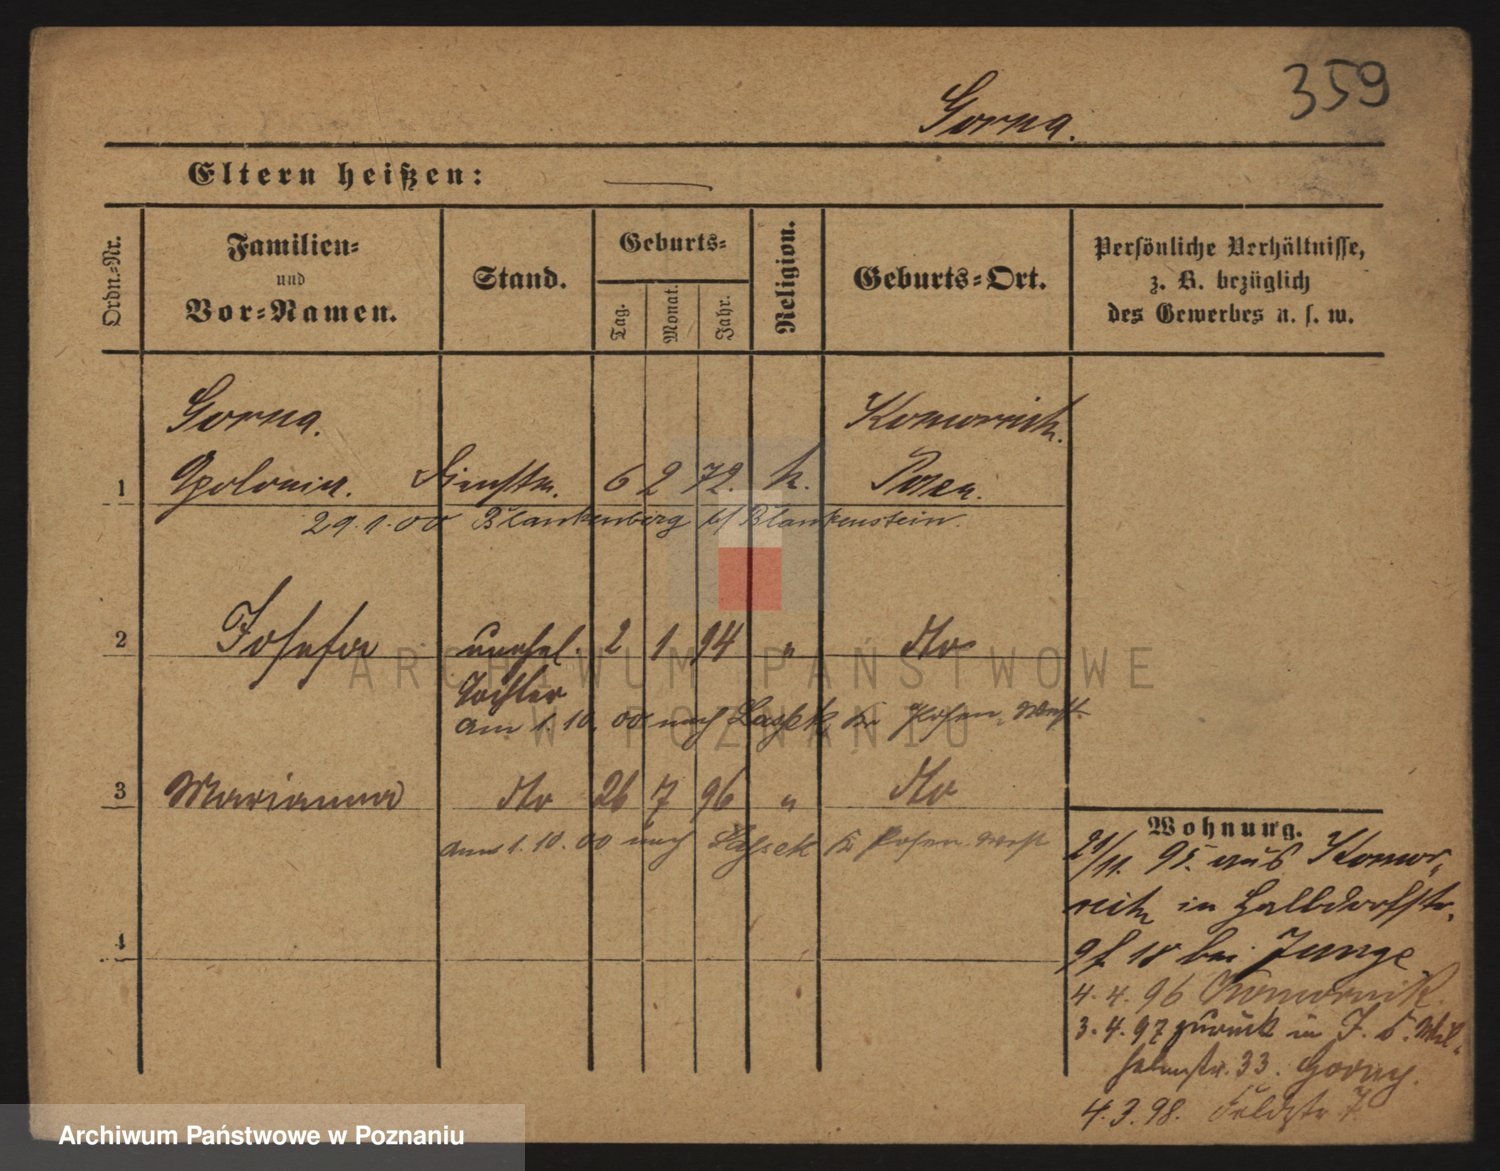 359
Gorna.
Eltern heißen: —
Ordn.-Nr.
Familien-
und
Vor-Namen.
Stand.
Geburts-
Tag.
Monat.
Jahr.
Religion.
Geburts-Ort.
Persönliche Verhältnisse,
z. B. bezüglich
des Gewerbes u. s. w.
Gorna. Komornik.
1 Apolonia. Dienstm. 6 2 72. k. Posen.
29.1.00 Blankenberg b/ Blankenstein.
2 Josefa unehel. 2 1 94 " dto
Tochter
am 1.10.00 nach Lassek Kr Posen. West.
3 Marianna dto 26 7 96 " dto
am 1.10.00 nach Lassek Kr Posen. West
4
Wohnung.
21/11. 95. aus Komor-
nik in Halbdorfstr.
18 bei Junge
4.4.96 Komornik.
3.4.97 zurück in Wil-
helmstr. 33. Gorny.
4.3.98. Feldstr 7.
ARCHIWUM PAŃSTWOWE
W POZNANIU
Archiwum Państwowe w Poznaniu